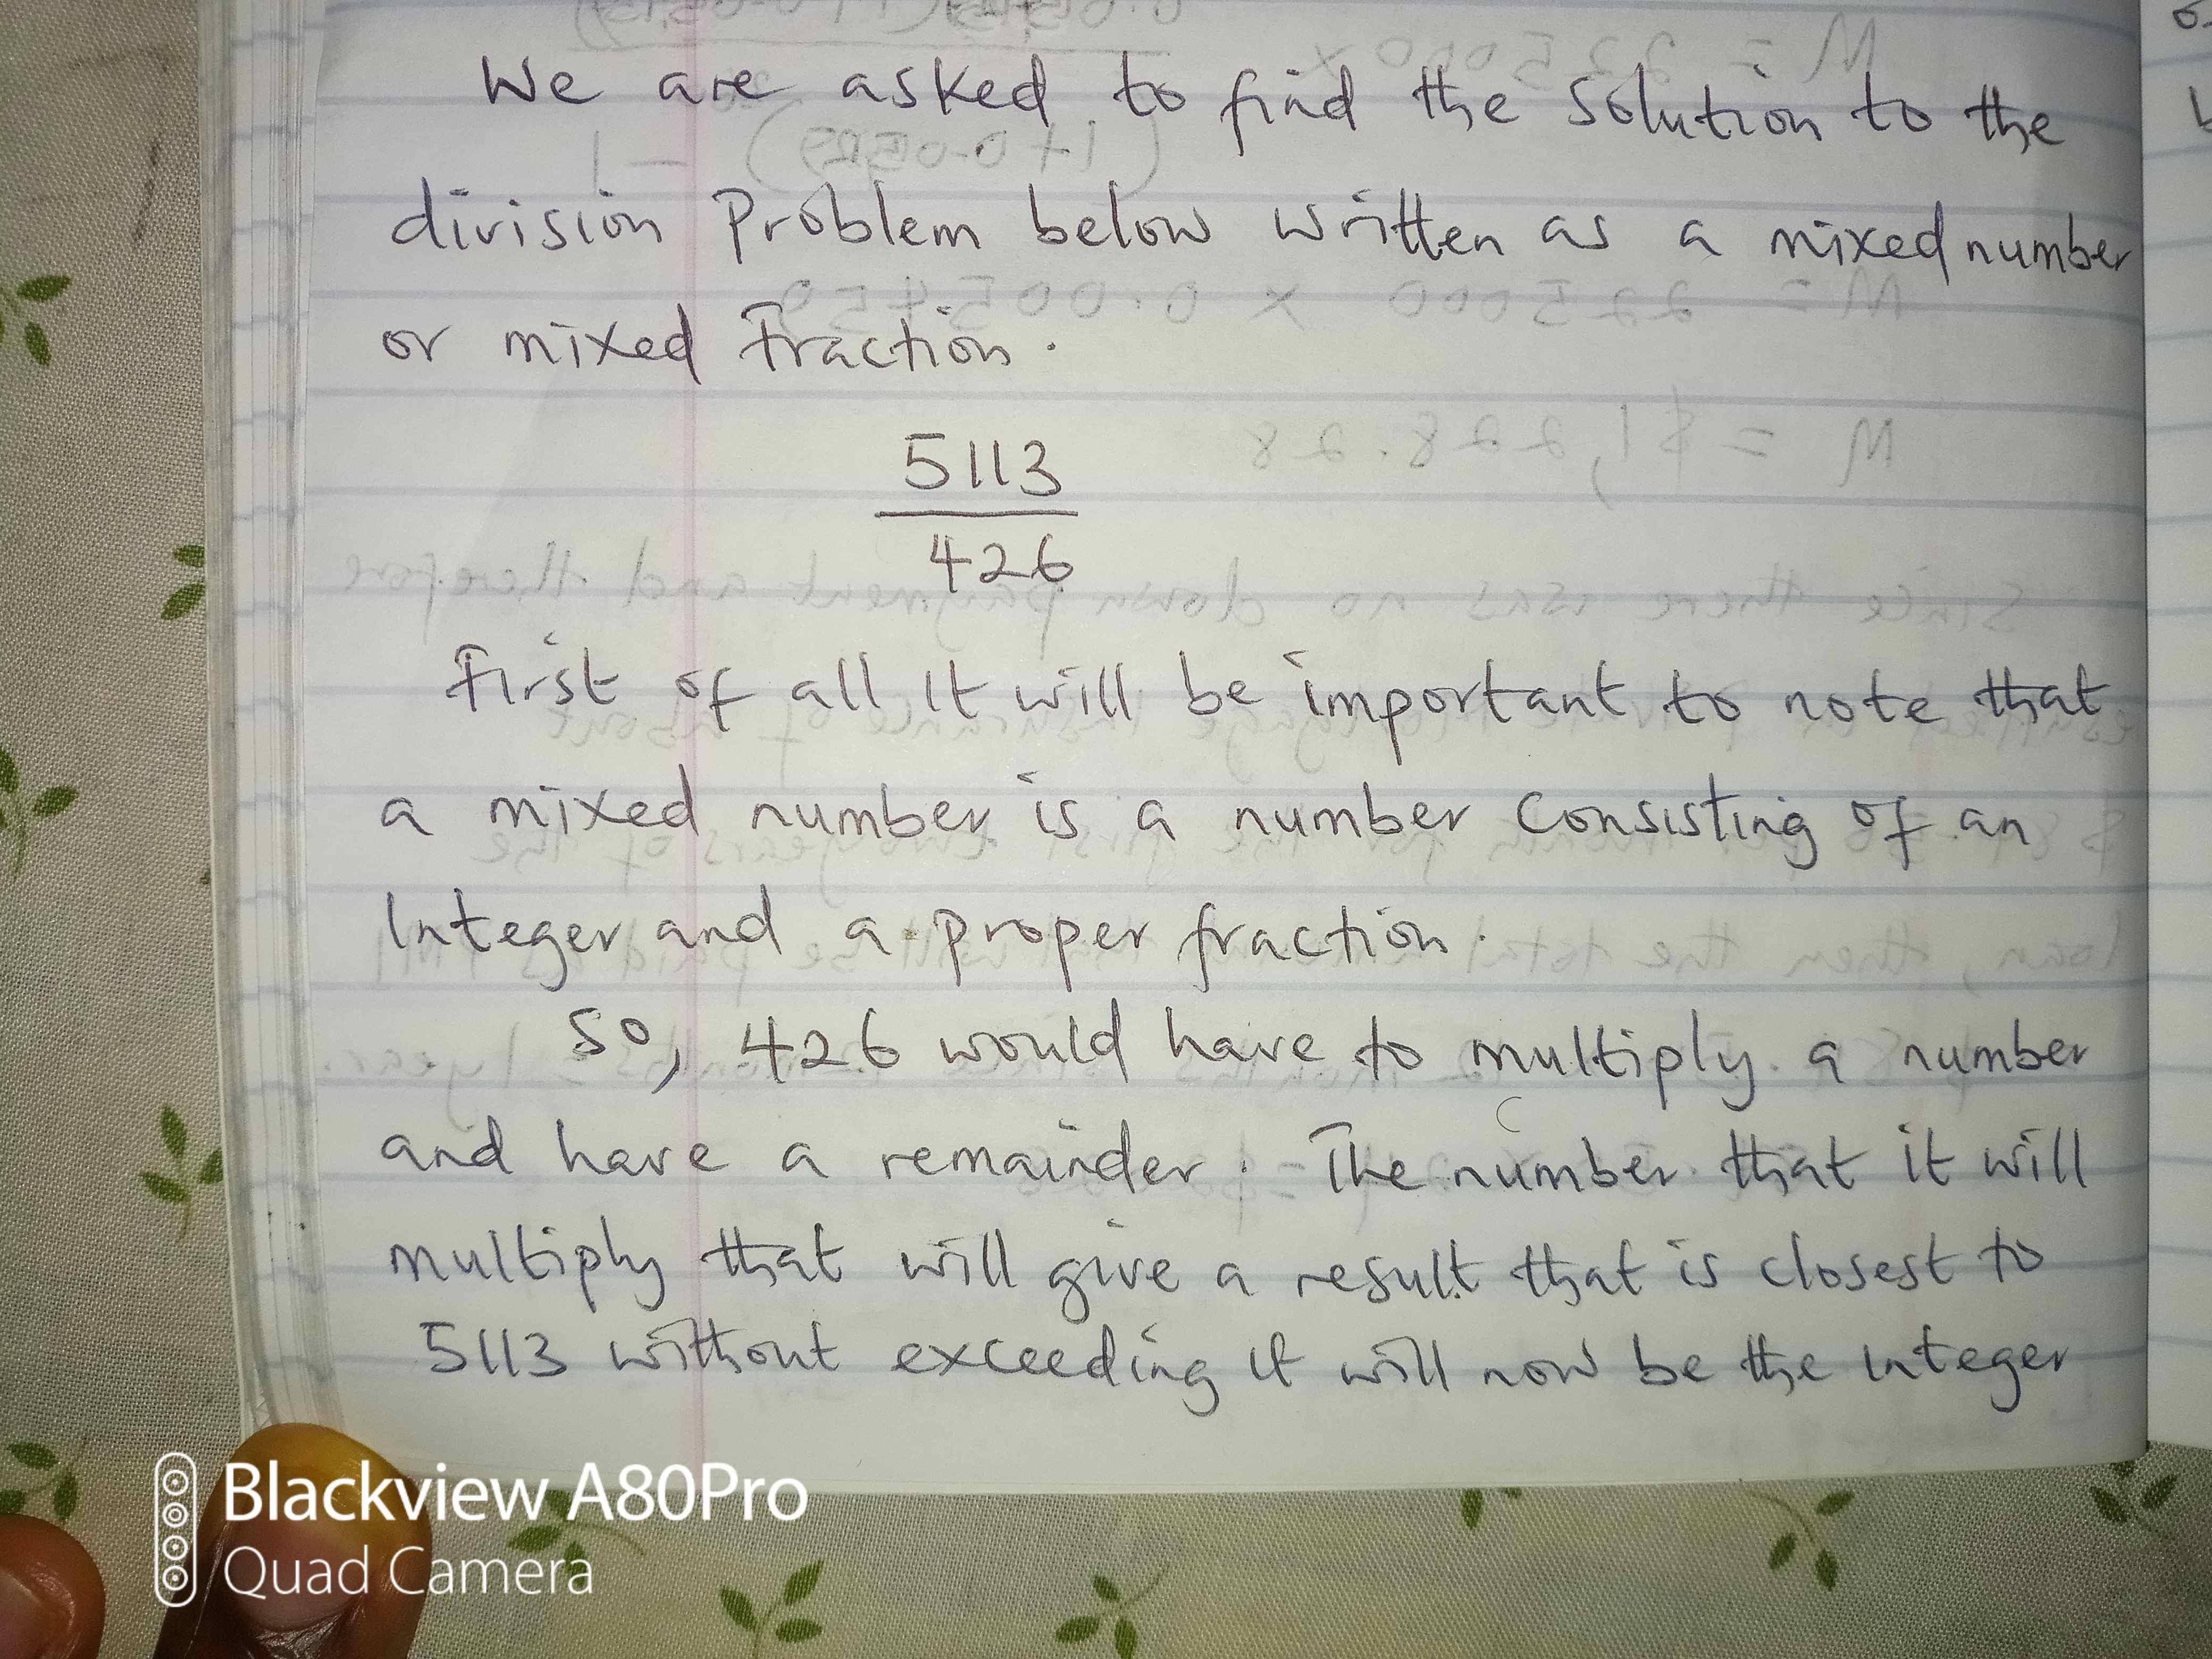 We are asked to find the solution to the
division Problem below written as a mixed number
or mixed Fraction.
5113
426
First of all it will be important to note that
a mixed number is a number consisting of an
Integer and a proper fraction.
So, 426 would have to multiply a number
and have a remainder. The number that it will
multiply that will give a result that is closest to
5113 without exceeding it will now be the integer
Blackview A80Pro
Quad Camera